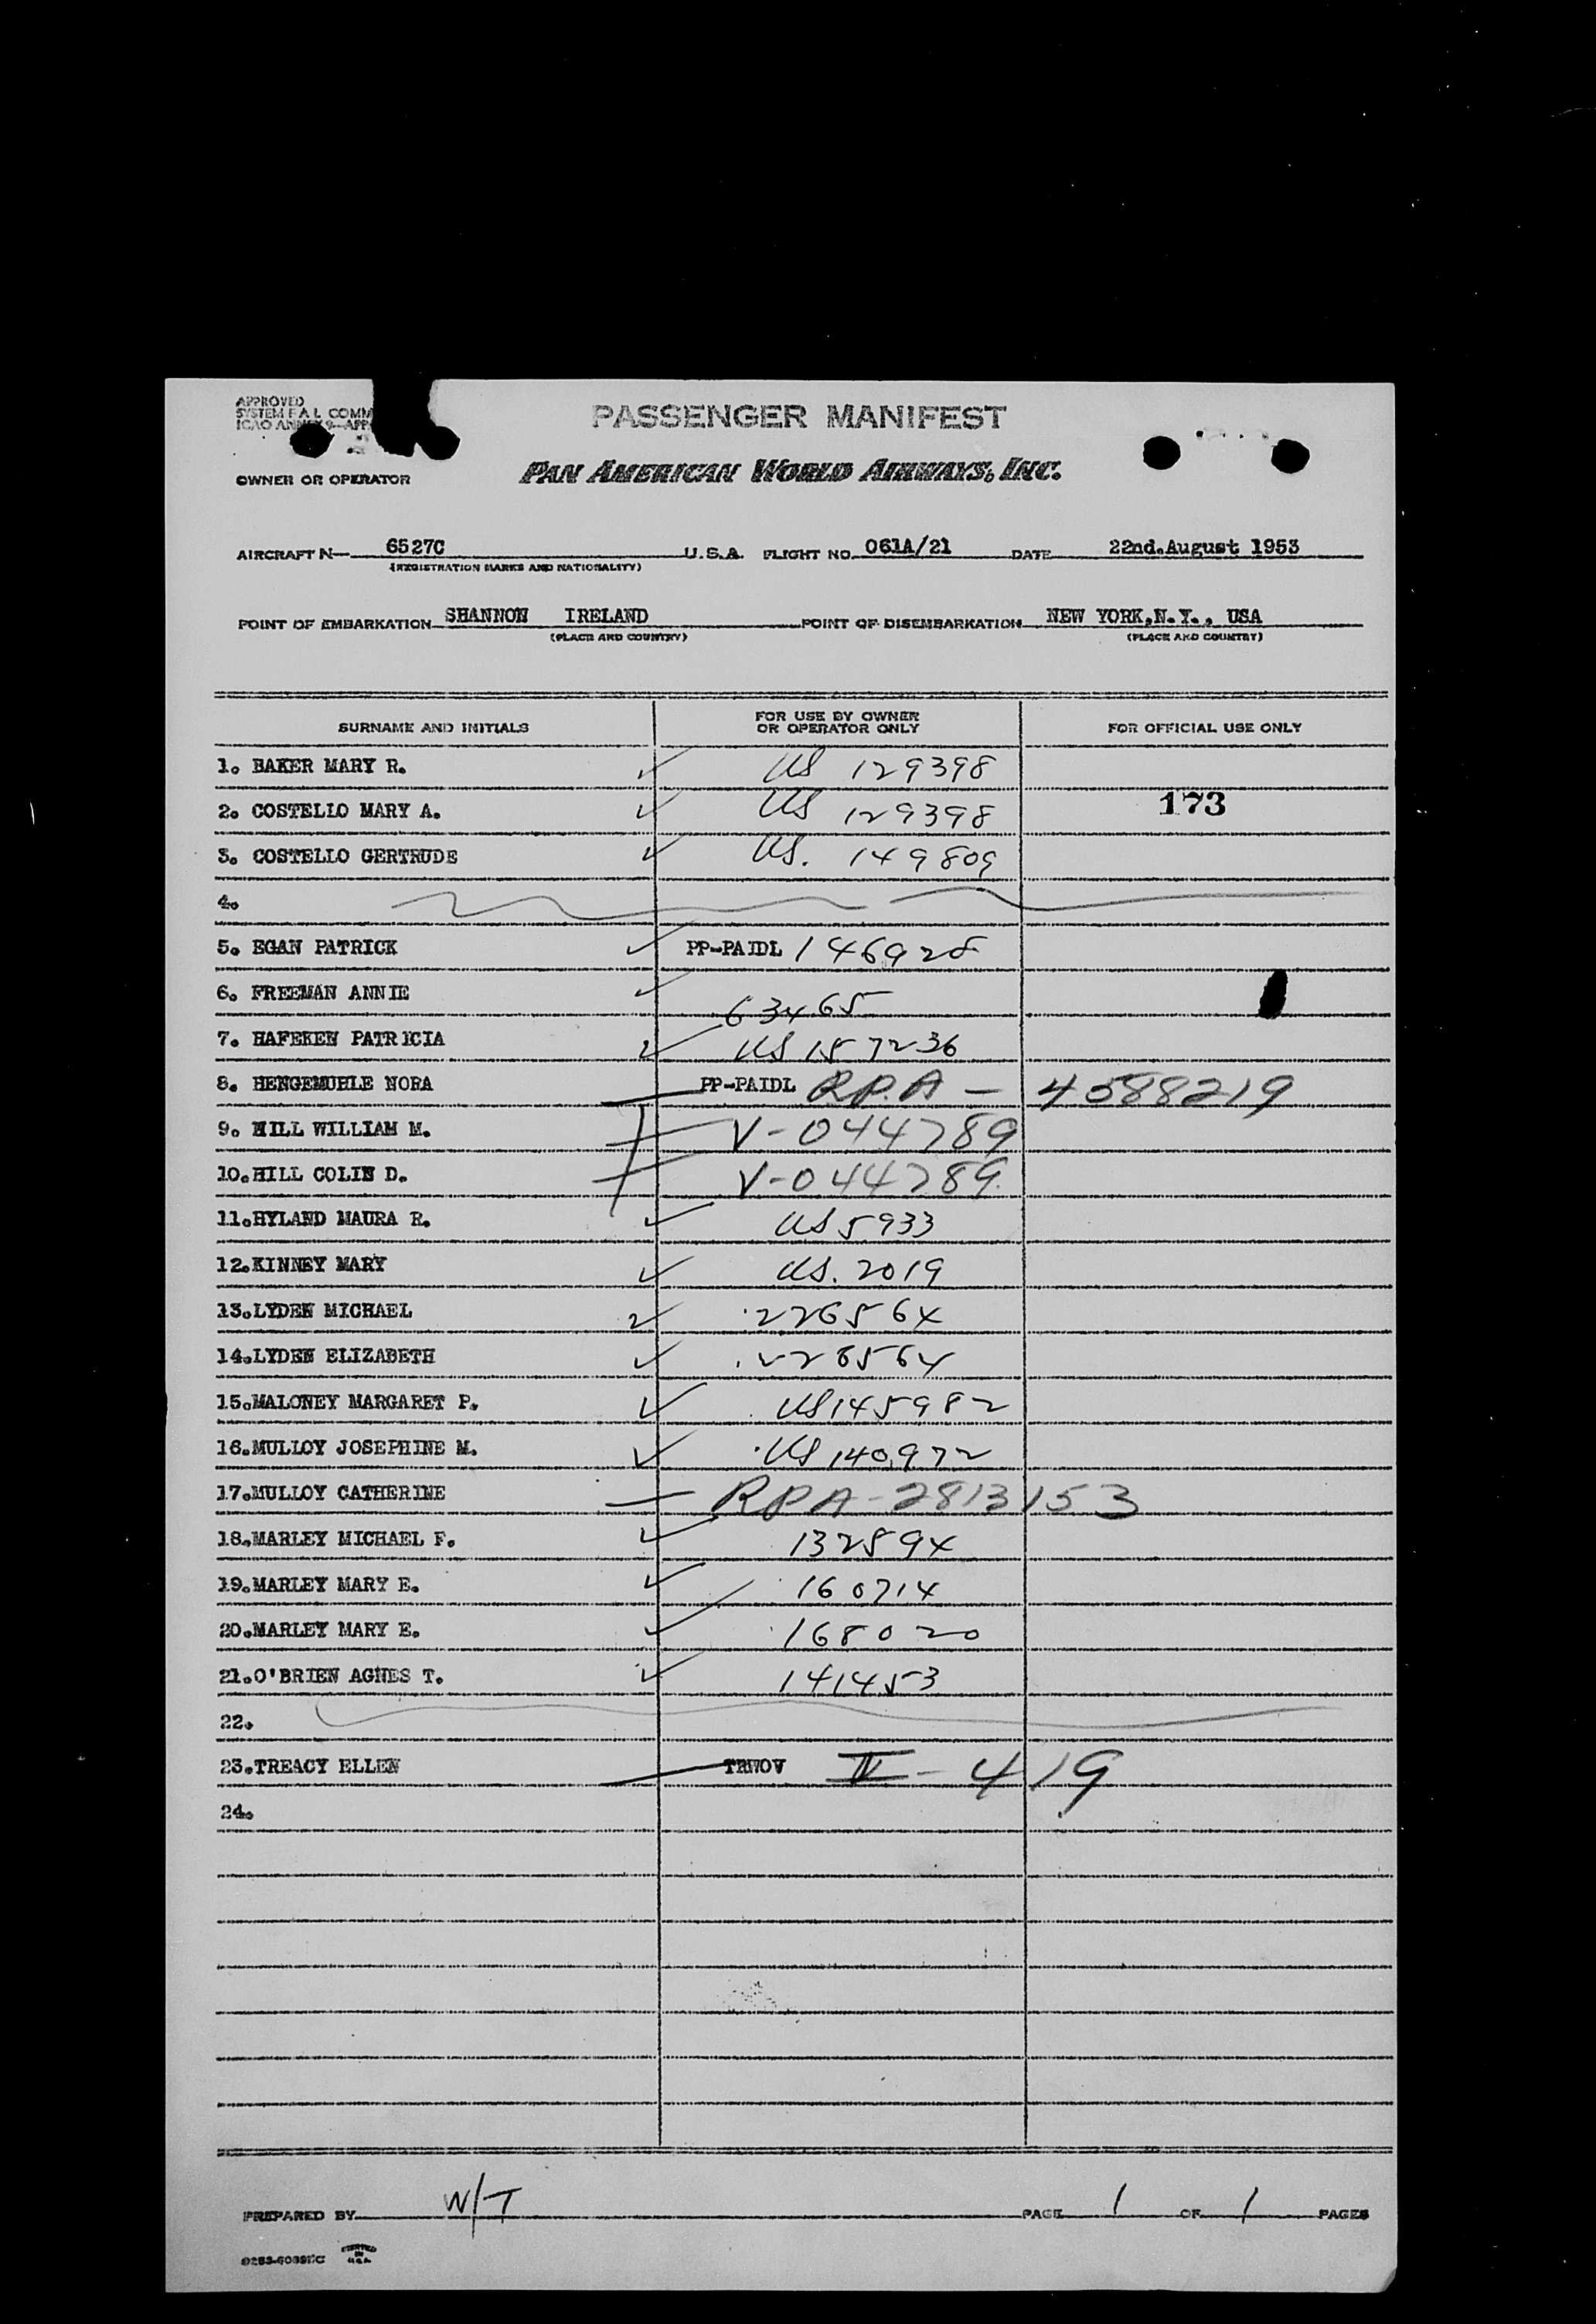 APPROVED
SYSTEM F A L COMM
ICAO ANNEX 9—APP
PASSENGER MANIFEST
OWNER OR OPERATOR PAN AMERICAN WORLD AIRWAYS, INC.
AIRCRAFT N— 6527C U.S.A. FLIGHT NO. 061A/21 DATE 22nd.August 1953
(REGISTRATION MARKS AND NATIONALITY)
POINT OF EMBARKATION SHANNON IRELAND POINT OF DISEMBARKATION NEW YORK,N.Y., USA
(PLACE AND COUNTRY) (PLACE AND COUNTRY)
SURNAME AND INITIALS FOR USE BY OWNER OR OPERATOR ONLY FOR OFFICIAL USE ONLY
1. BAKER MARY R. US 129398
2. COSTELLO MARY A. US 129398 173
3. COSTELLO GERTRUDE US. 149809
4.
5. EGAN PATRICK PP-PAIDL 146928
6. FREEMAN ANNIE 63465
7. HAFEKEN PATRICIA US 157236
8. HENGEMUHLE NORA PP-PAIDL R.P.A - 4588219
9. HILL WILLIAM M. V-044789
10.HILL COLIN D. V-044789
11.HYLAND MAURA R. US 5933
12.KINNEY MARY US. 2019
13.LYDEN MICHAEL 226564
14.LYDEN ELIZABETH 226564
15.MALONEY MARGARET P. US 145982
16.MULLOY JOSEPHINE M. US 140972
17.MULLOY CATHERINE RPA-2813153
18.MARLEY MICHAEL F. 132594
19.MARLEY MARY E. 160714
20.MARLEY MARY E. 168020
21.O'BRIEN AGNES T. 141453
22.
23.TREACY ELLEN TRWOV IV - 419
24.
PREPARED BY W/T PAGE 1 OF 1 PAGES
PRINTED IN U.S.A.